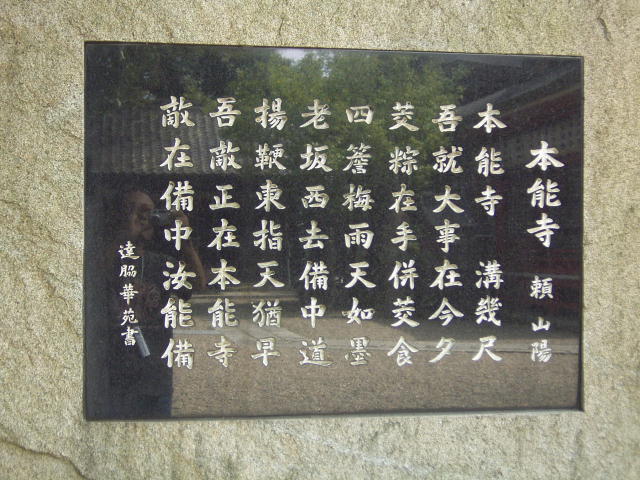 本能寺 頼山陽
本能寺 溝幾尺
吾就大事在今夕
茭粽在手併茭食
四簷梅雨天如墨
老坂西去備中道
揚鞭東指天猶早
吾敵正在本能寺
敵在備中汝能備
達脇華苑書